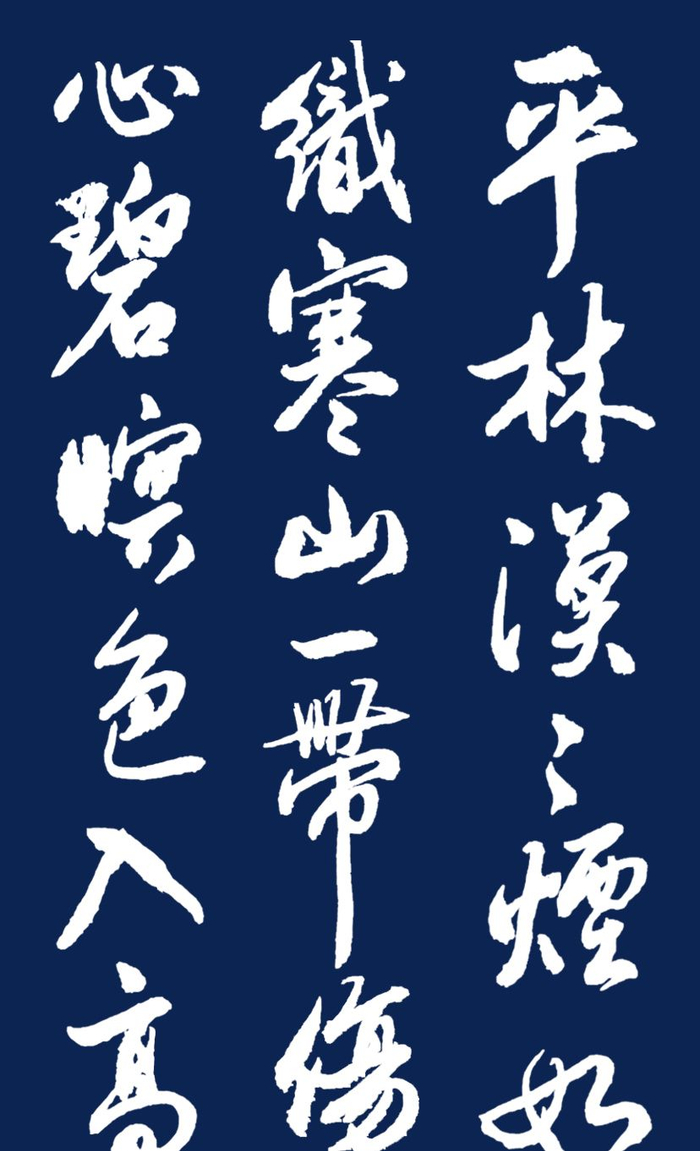 平林漠〻煙如
織寒山一帶傷
心碧暝色入高